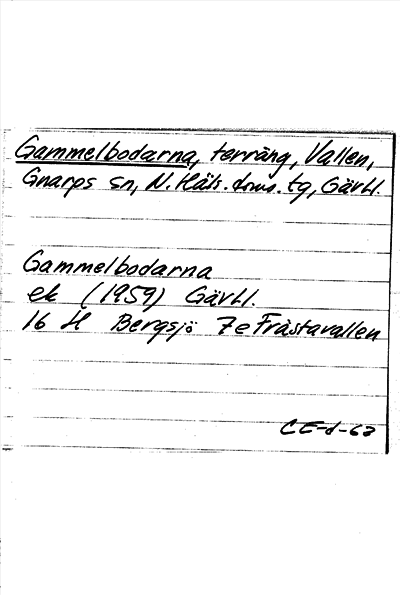 Gammelbodarna, terräng, Vallen,
Gnarps sn, N. Häls. doms. tg, Gävbl.
Gammelbodarna
ek (1959) Gävbl.
16 H Bergsjö 7e Frästavallen
CE-d-62